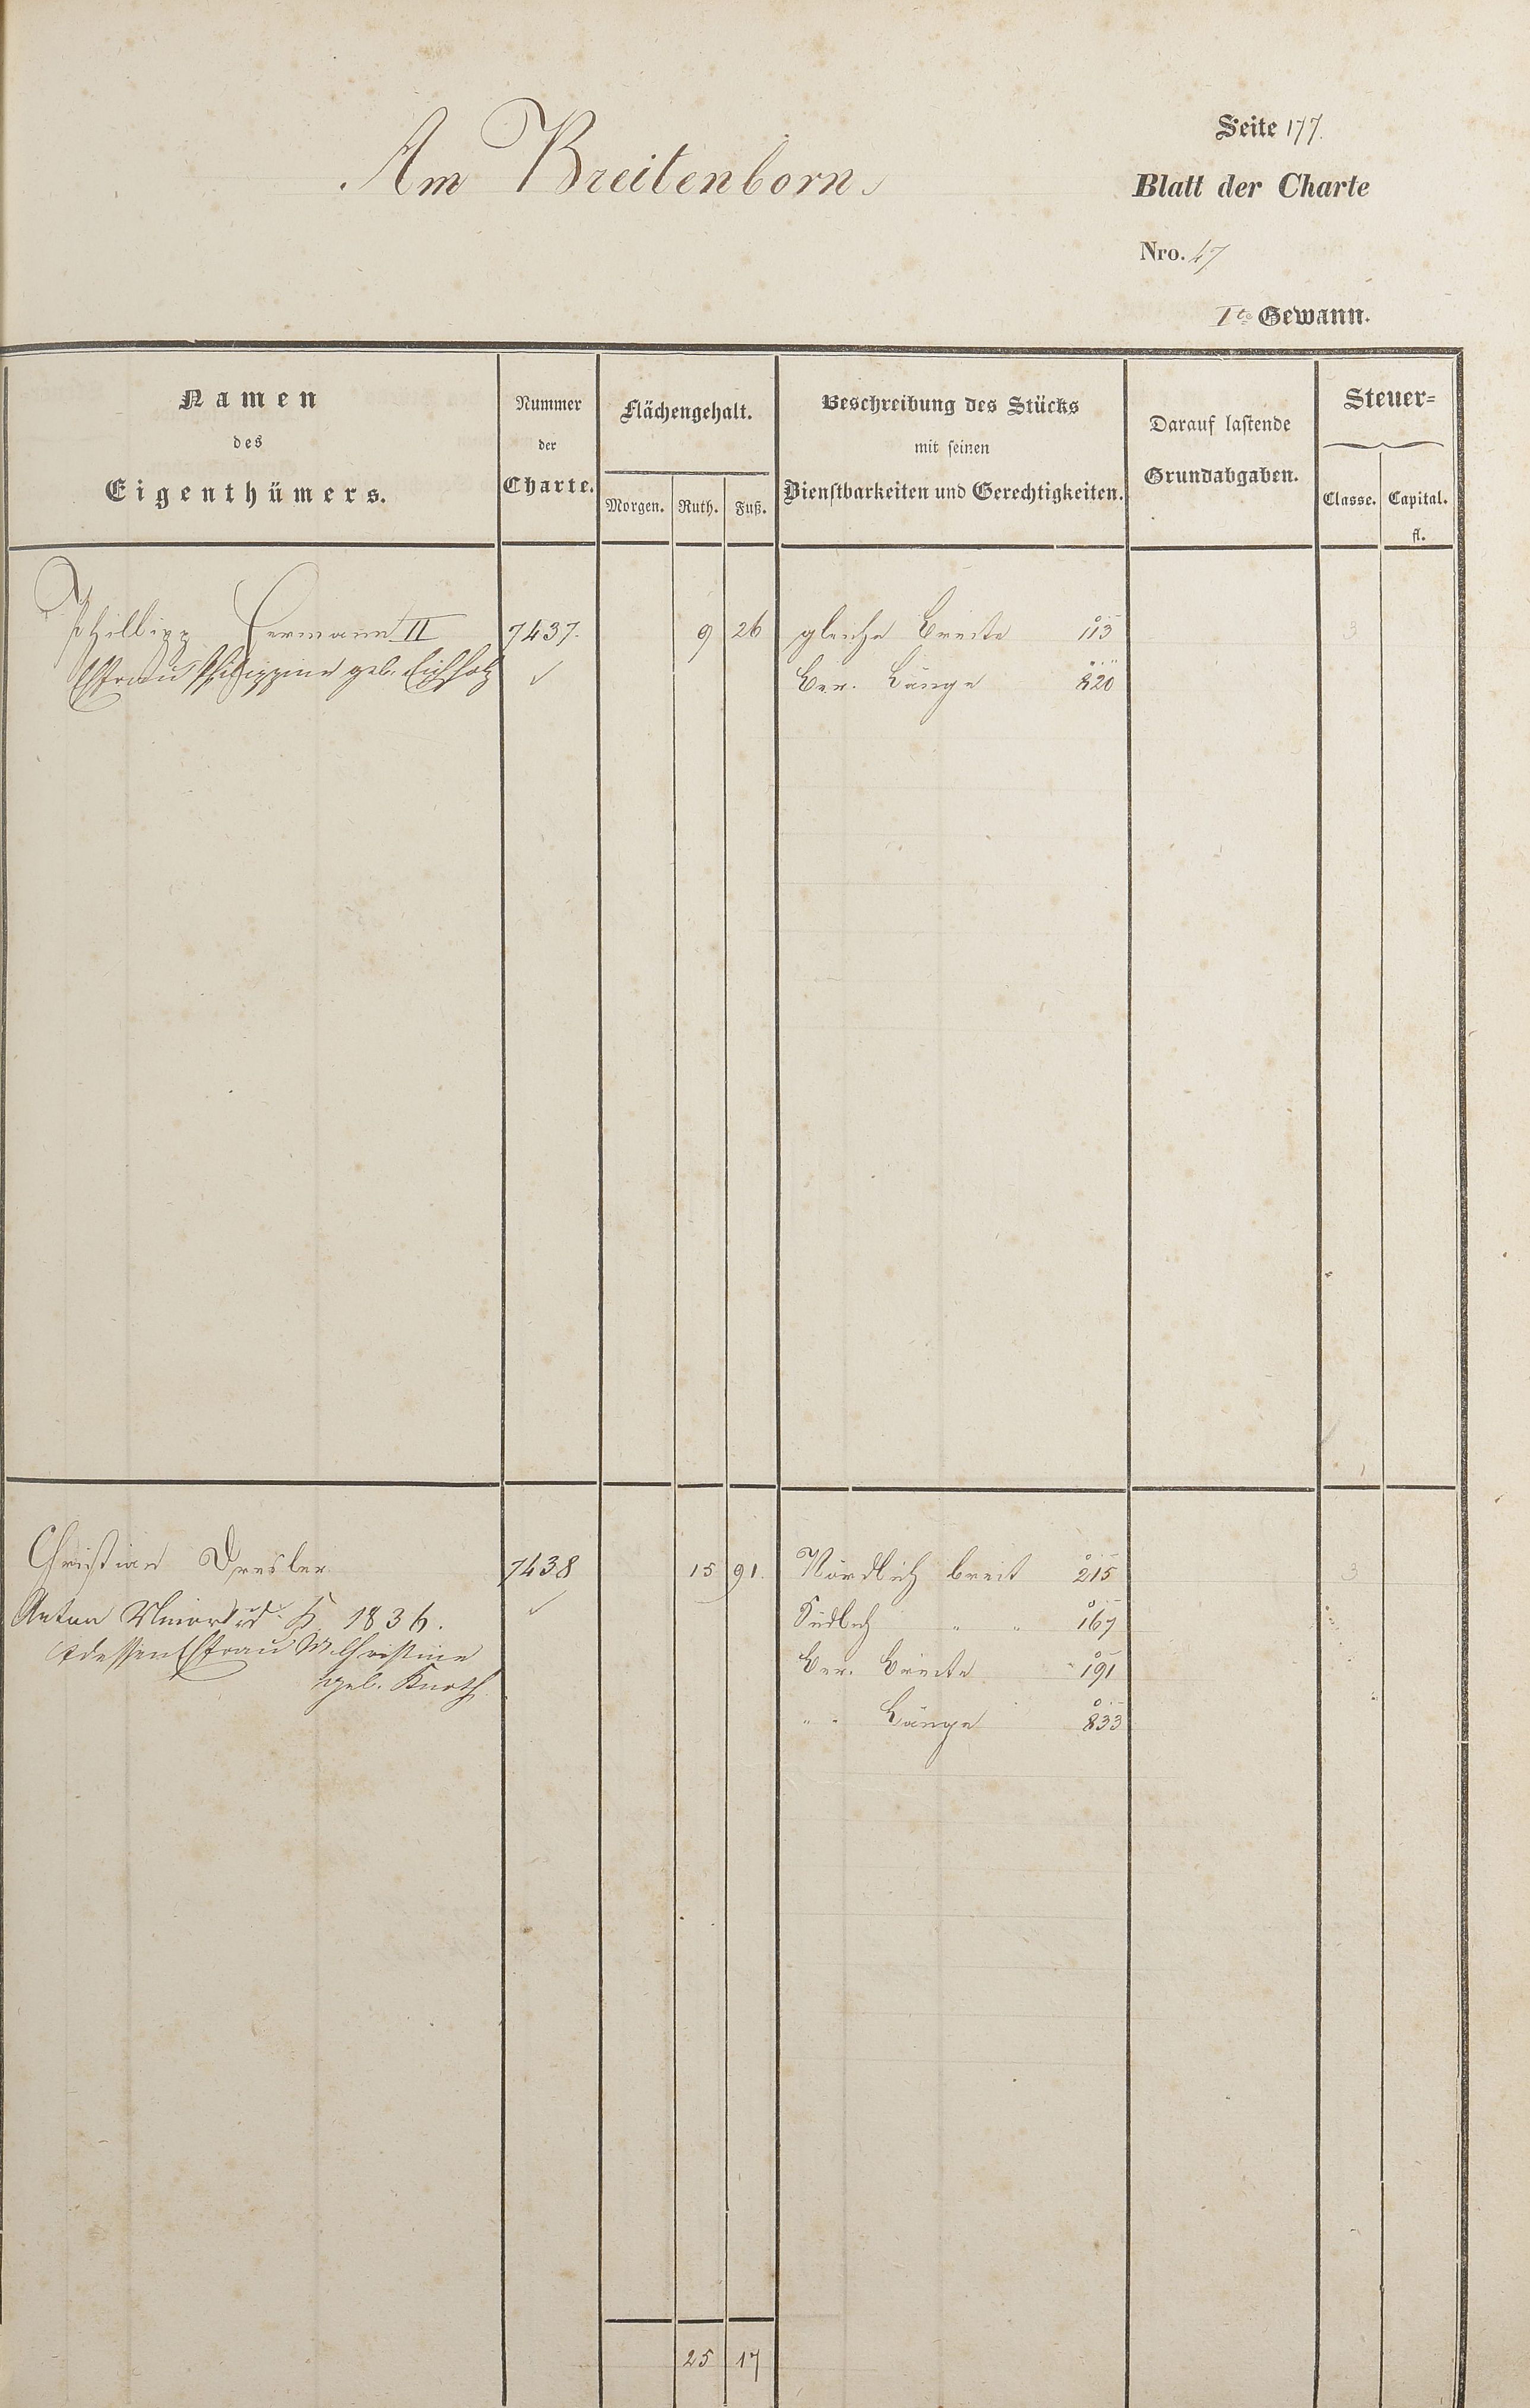 Am Breitenborn
Seite 177.
Blatt der Charte
Nro. 47
Ite Gewann.
Namen
des
Eigenthümers.
Nummer
der
Charte.
Flächengehalt.
Morgen. Ruth. Fuß.
Beschreibung des Stücks
mit seinen
Dienstbarkeiten und Gerechtigkeiten.
Darauf lastende
Grundabgaben.
Steuer=
Classe. Capital.
fl.
Philipp Hermann II 7437. 9 26 gleiche Breite 113 3
Ehefrau Philippine geb. Eichholz ✓ Ber. Länge 820
Christian Dresler 7438 15 91. Nördlich breit 215 3
Anton 1836. ✓ Südlich " " 167
dessen Ehefrau M. Christine Ber. Breite 191
geb. Knoth " " Länge 833
25 17